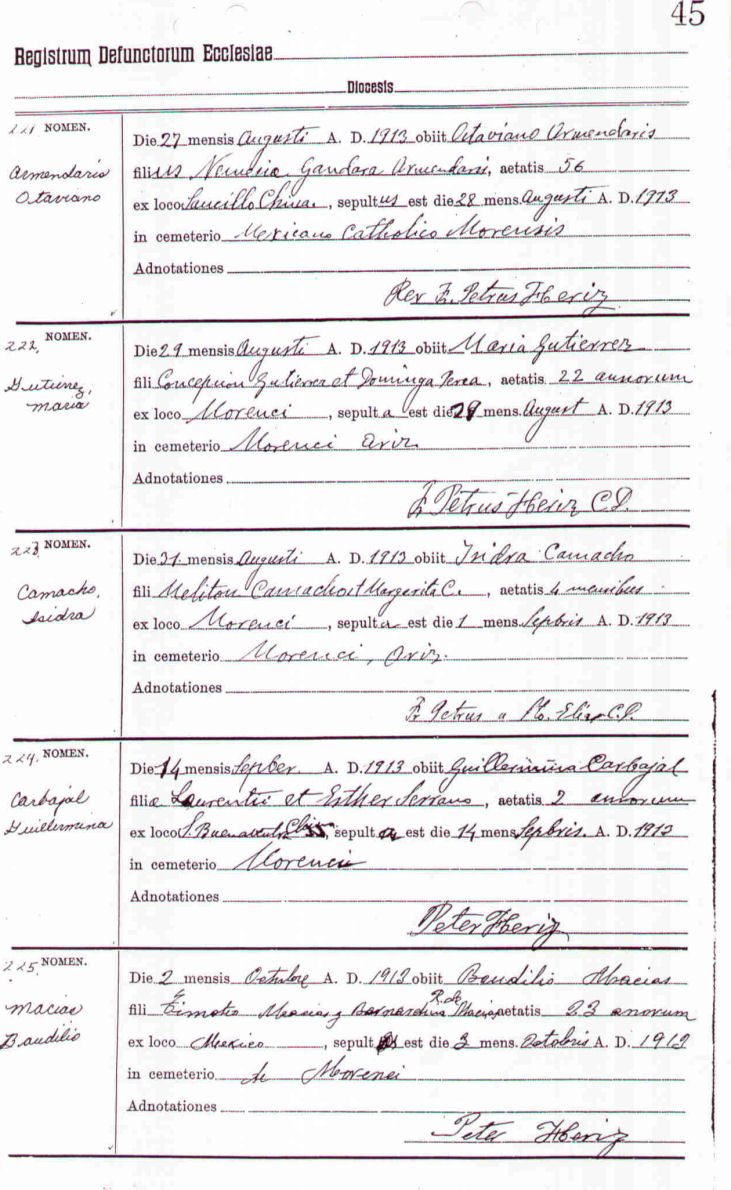 45
Registrum Defunctorum Ecclesiae
Diocesis
221 NOMEN.
Armendaris
Otaviano
Die 27 mensis Augusti A. D. 1913 obiit Octaviano Armendaris
filius Gandara Armendaris, aetatis 56
ex loco Saucillo, sepultus est die 28 mens. Augusti A. D. 1913
in cemeterio Mexicano Catholico Morensis
Adnotationes
Rev F. Petrus Heriz
222, NOMEN.
Gutierrez,
Maria
Die 29 mensis Augusti A. D. 1913 obiit Maria Gutierrez
fili Concepcion Gutierrez et Dominga Perea, aetatis 22 annorum
ex loco Morenci, sepult a est die 29 mens. August A. D. 1913
in cemeterio Morenci Ariz
Adnotationes
Fr Petrus Heriz C.D.
223 NOMEN.
Camacho,
Isidra
Die 31 mensis Augusti A. D. 1913 obiit Isidra Camacho
fili Meliton Camacho et Margarita C., aetatis 4 mensibus
ex loco Morenci, sepult a est die 1 mens. Sepbris A. D. 1913
in cemeterio Morenci, Ariz.
Adnotationes
Fr Petrus a
224. NOMEN.
Carbajal
Guillermina
Die 14 mensis Sepber. A. D. 1913 obiit Guillermina Carbajal
filiæ Laurentii et Esther Serrano, aetatis 2 annorum
ex loco S. Buenavent, sepult a est die 14 mens. Sepbris. A. D. 1913
in cemeterio Morenci
Adnotationes
Peter Heriz
225. NOMEN.
Macias
Baudilio
Die 2 mensis Octubre A. D. 1913 obiit Baudilio Macias
fili Timoteo Macias y Bernardina R. de Macias, aetatis 23 anorum
ex loco Mexico, sepult est die 3 mens. Octobris A. D. 1913
in cemeterio de Morenci
Adnotationes
Peter Heriz